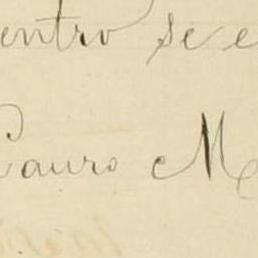 entro se e
Cauro M